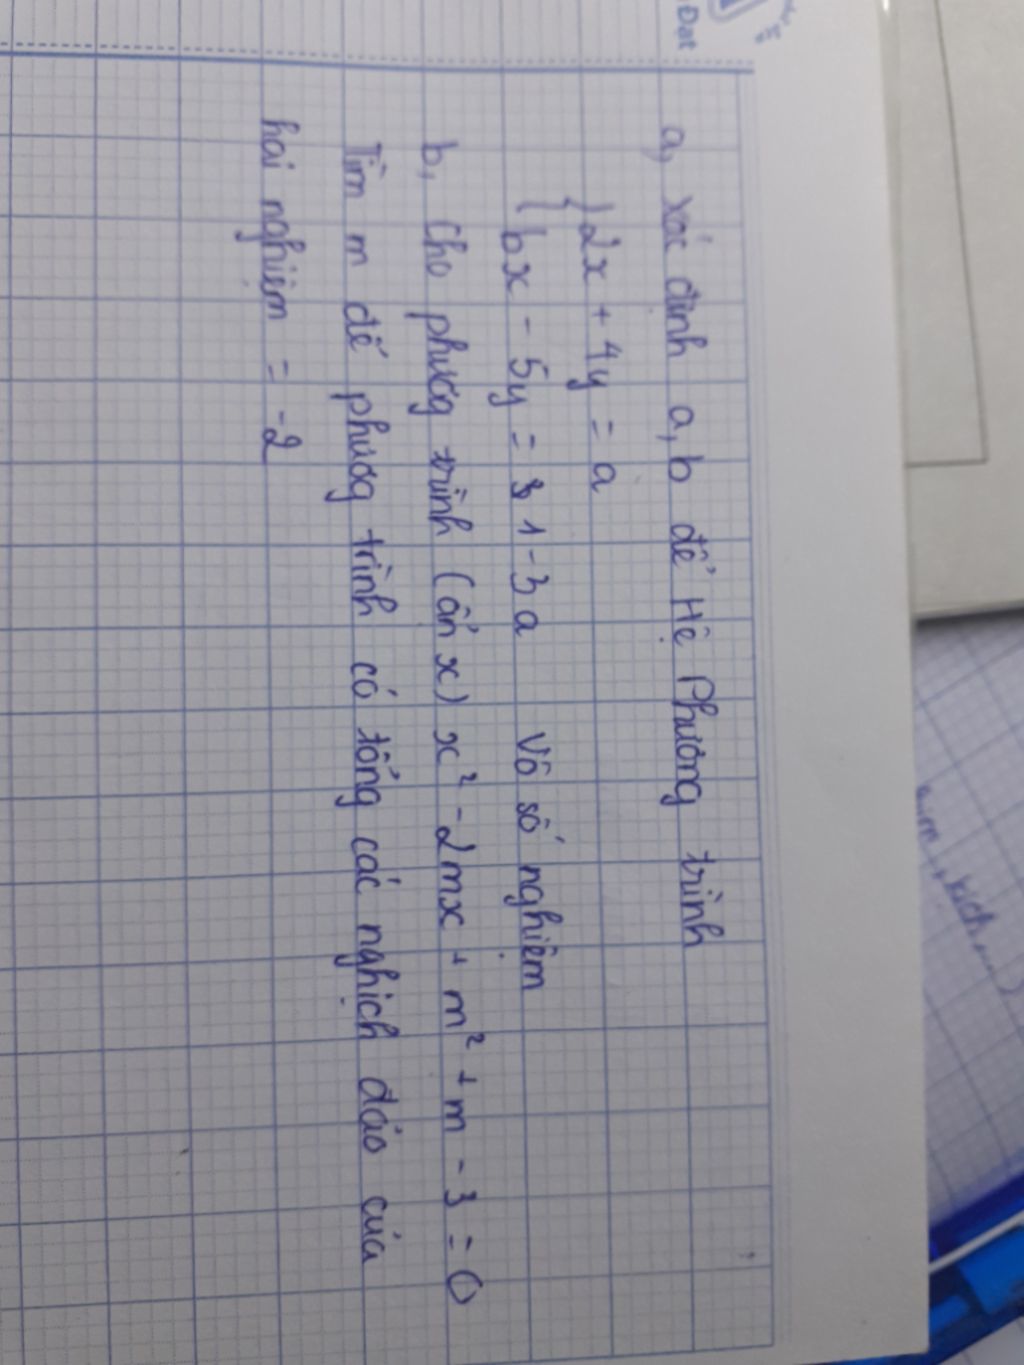 a, xác định a, b để Hệ Phương trình
{ 2x + 4y = a
{ bx - 5y = 1 - 3a Vô số nghiệm
b, Cho phương trình (ẩn x) x² - 2mx + m² + m - 3 = 0
Tìm m để phương trình có tổng các nghịch đảo của
hai nghiệm = -2
Đạt
kích